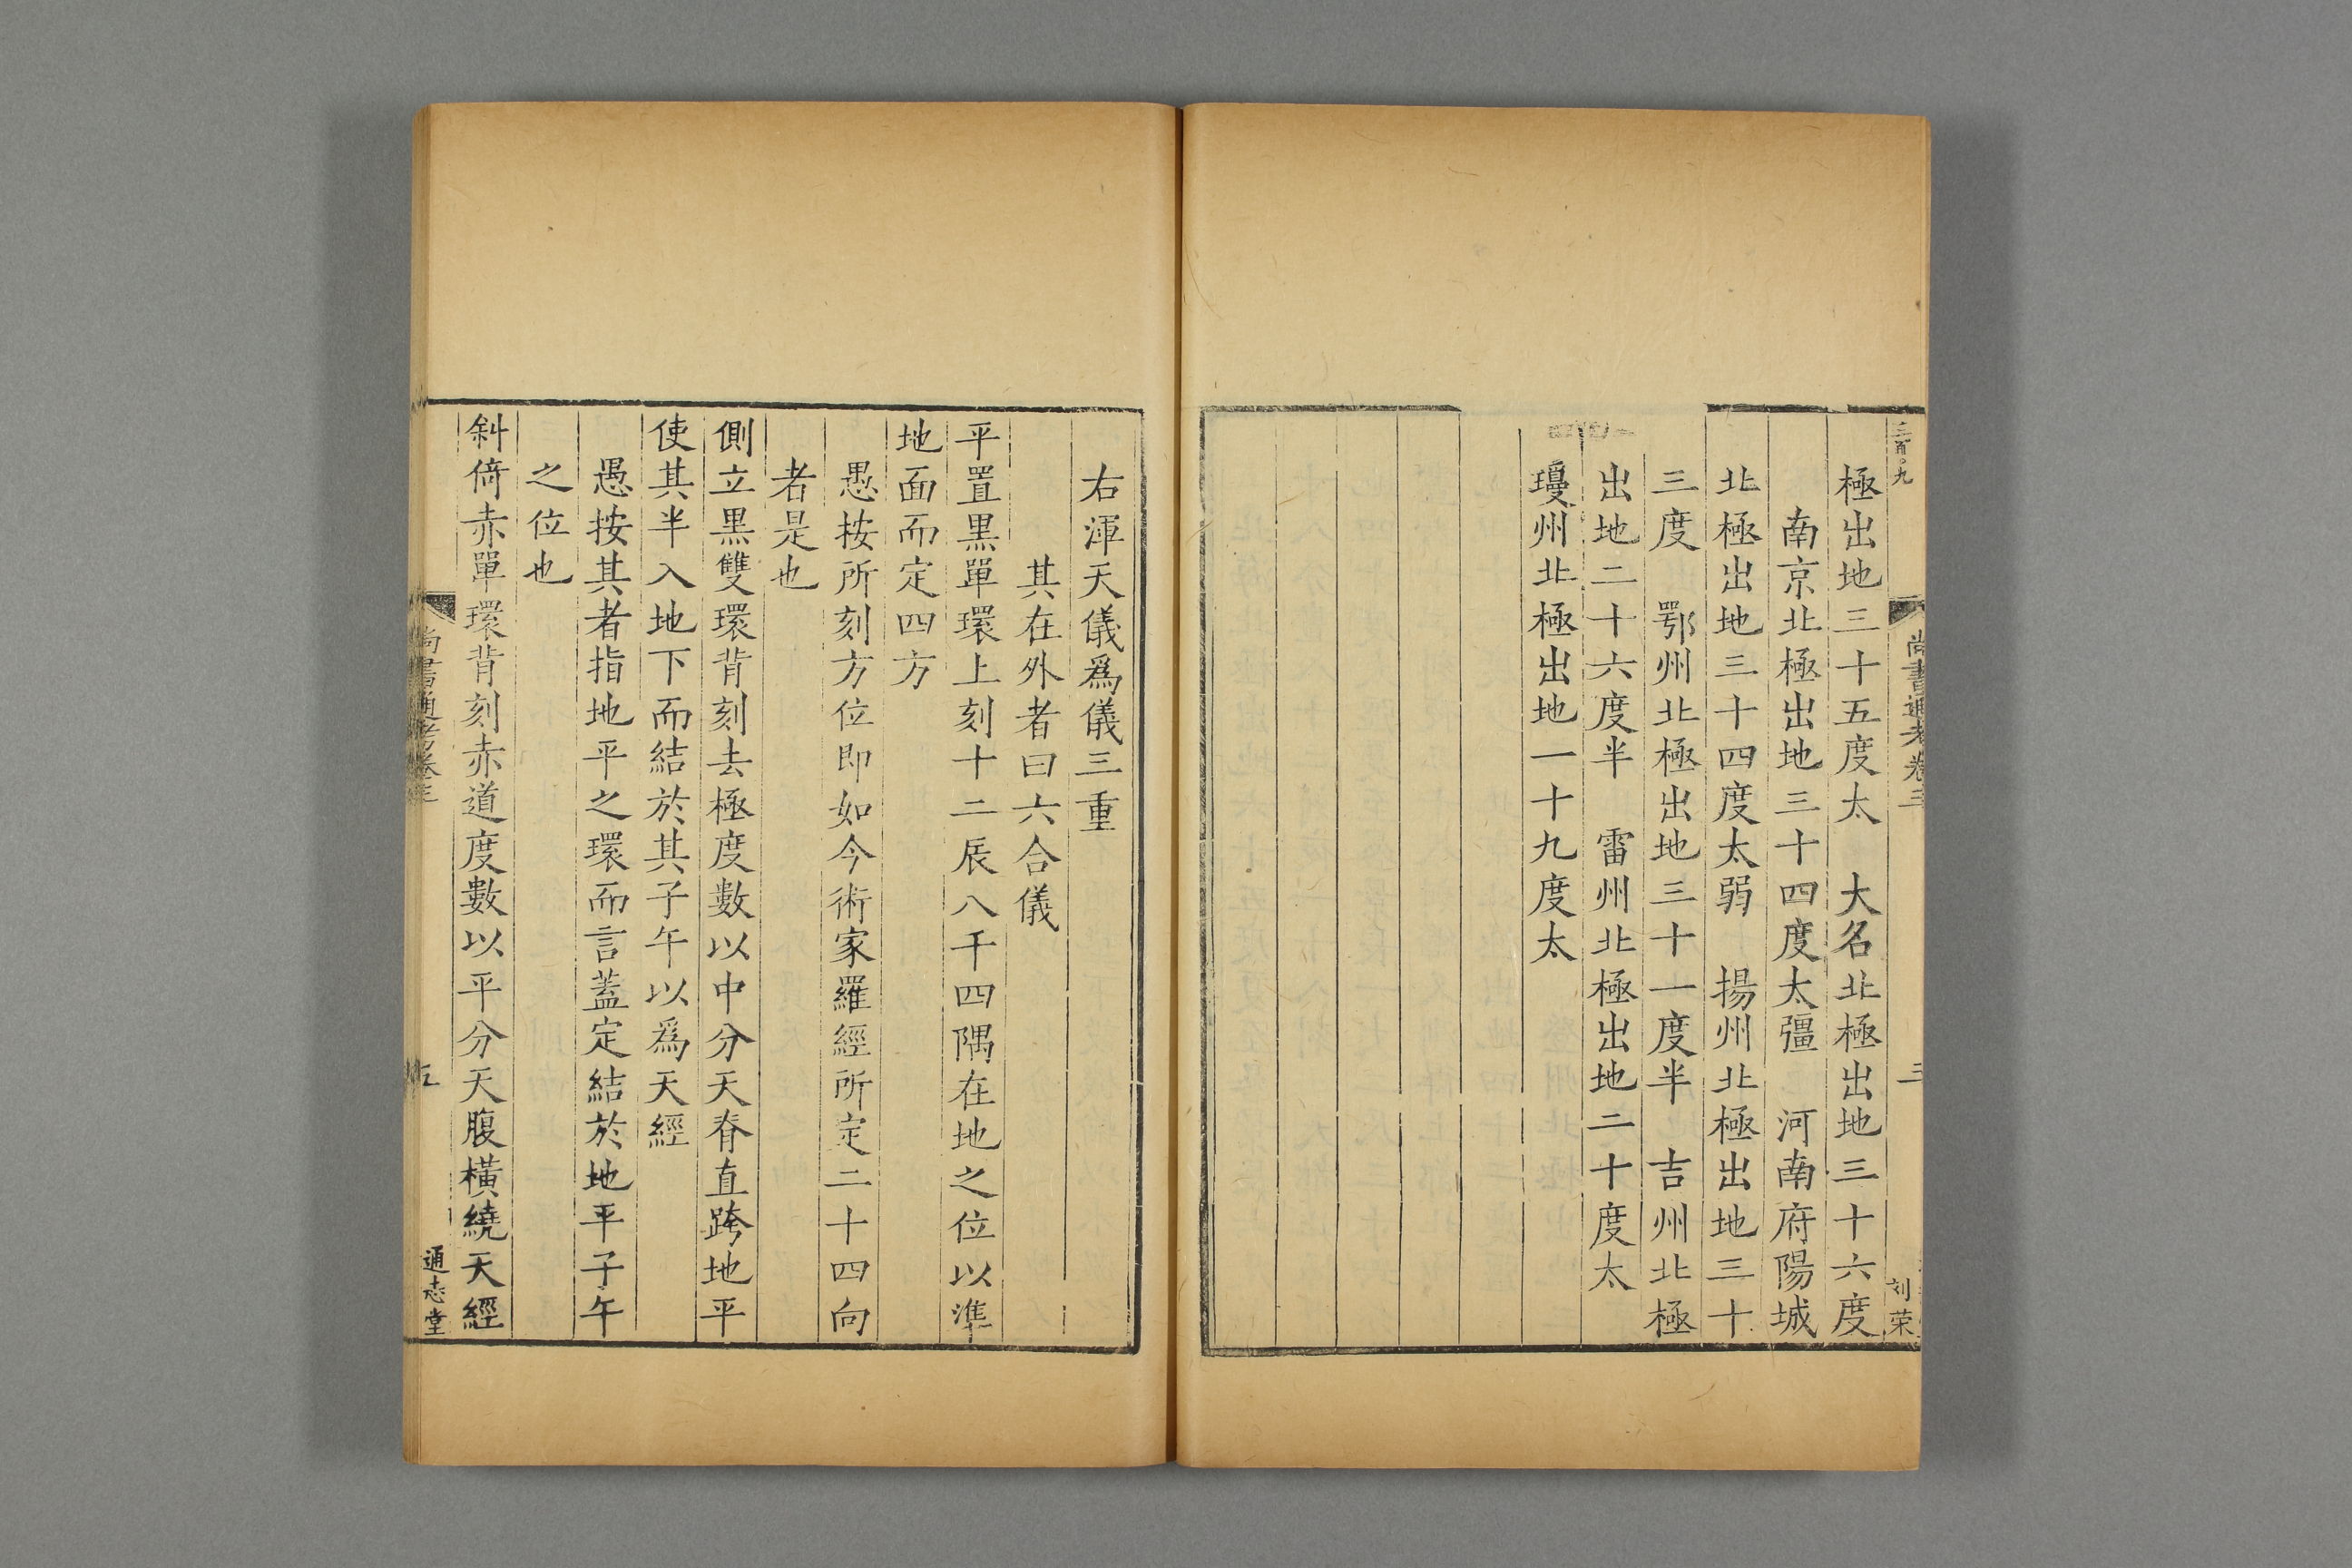 三百〇九
尚書通考卷三
三
刘荣
極出地三十五度太　大名北極出地三十六度
南京北極出地三十四度太彊　河南府陽城
北極出地三十四度太弱　揚州北極出地三十
三度　鄂州北極出地三十一度半　吉州北極
出地二十六度半　雷州北極出地二十度太
瓊州北極出地一十九度太
右渾天儀爲儀三重
其在外者曰六合儀
平置黒單環上刻十二辰八干四隅在地之位以準
地面而定四方
愚按所刻方位即如今術家羅經所定二十四向
者是也
側立黒雙環背刻去極度數以中分天脊直跨地平
使其半入地下而結於其子午以爲天經
愚按其者指地平之環而言蓋定結於地平子午
之位也
斜倚赤單環背刻赤道度數以平分天腹橫繞天經
尚書通考卷三
五
通志堂